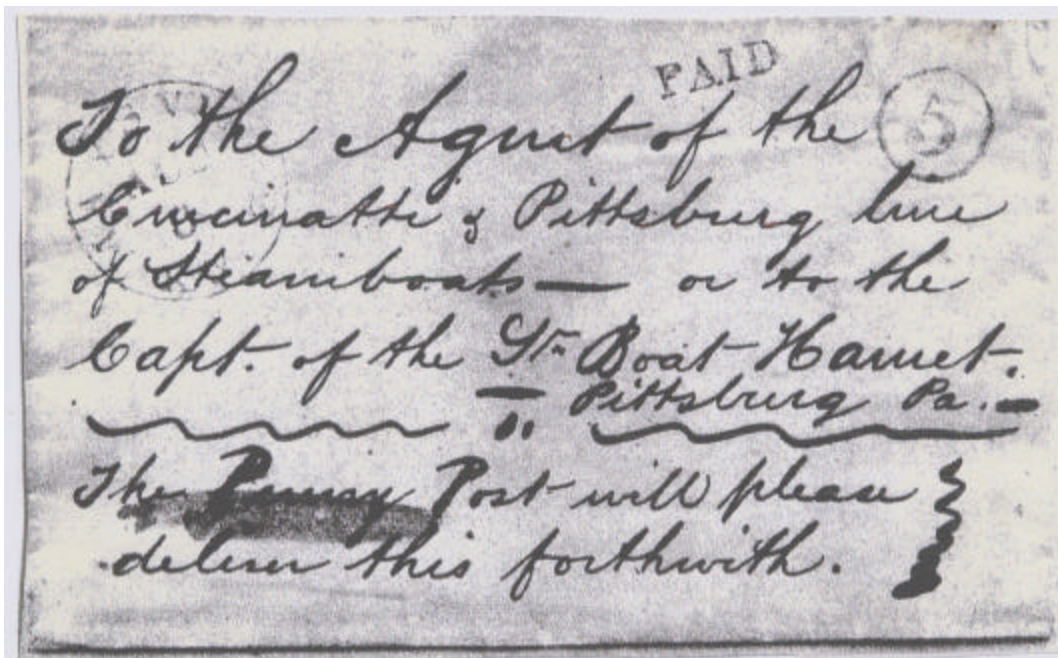 PAID
5
To the Agent of the
Cincinatti & Pittsburg line
of Steamboats — or to the
Capt. of the Str. Boat
Pittsburg Pa. —
The Penny Post will please
deliver this forthwith.